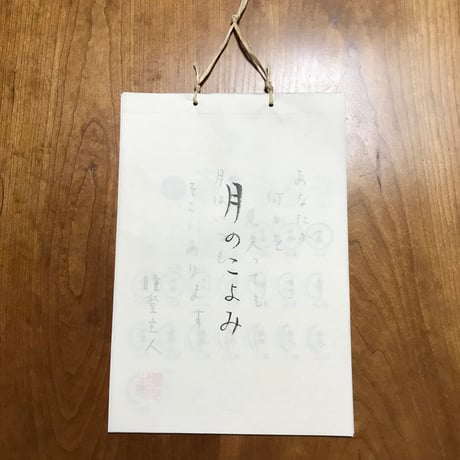 月のこよみ
あなたが
何かを
見失っても
月はいつも
そこにあります
堂主人